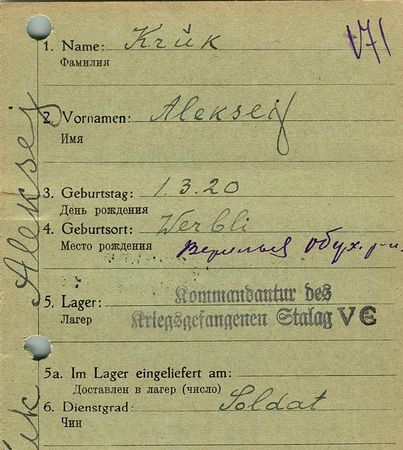 171
1. Name: Krük
Фамилия
2. Vornamen: Aleksej
Имя
3. Geburtstag: 1.3.20
День рождения
4. Geburtsort: Werbli
Место рождения обух. р-н.
5. Lager: Kommandantur des
Лагер Kriegsgefangenen Stalag V C
5a. Im Lager eingeliefert am:
Доставлен в лагер (число)
6. Dienstgrad: Soldat
Чин
Aleksej